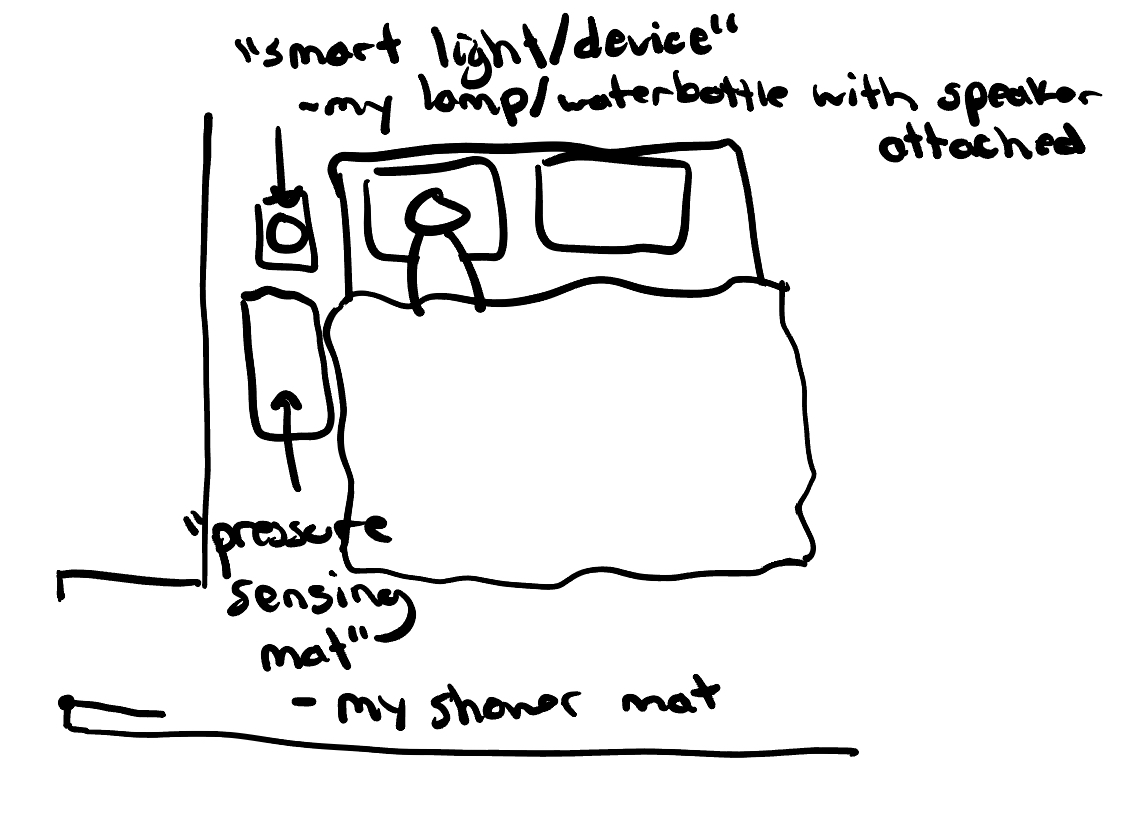 "smart light/device"
~my lamp/waterbottle with speaker
attached
"pressure
sensing
mat"
- my shower mat